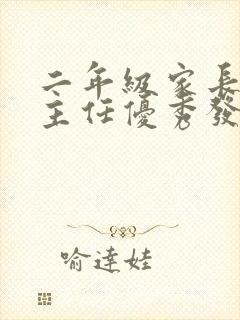 二年級家長
主任優秀發
喻達娃